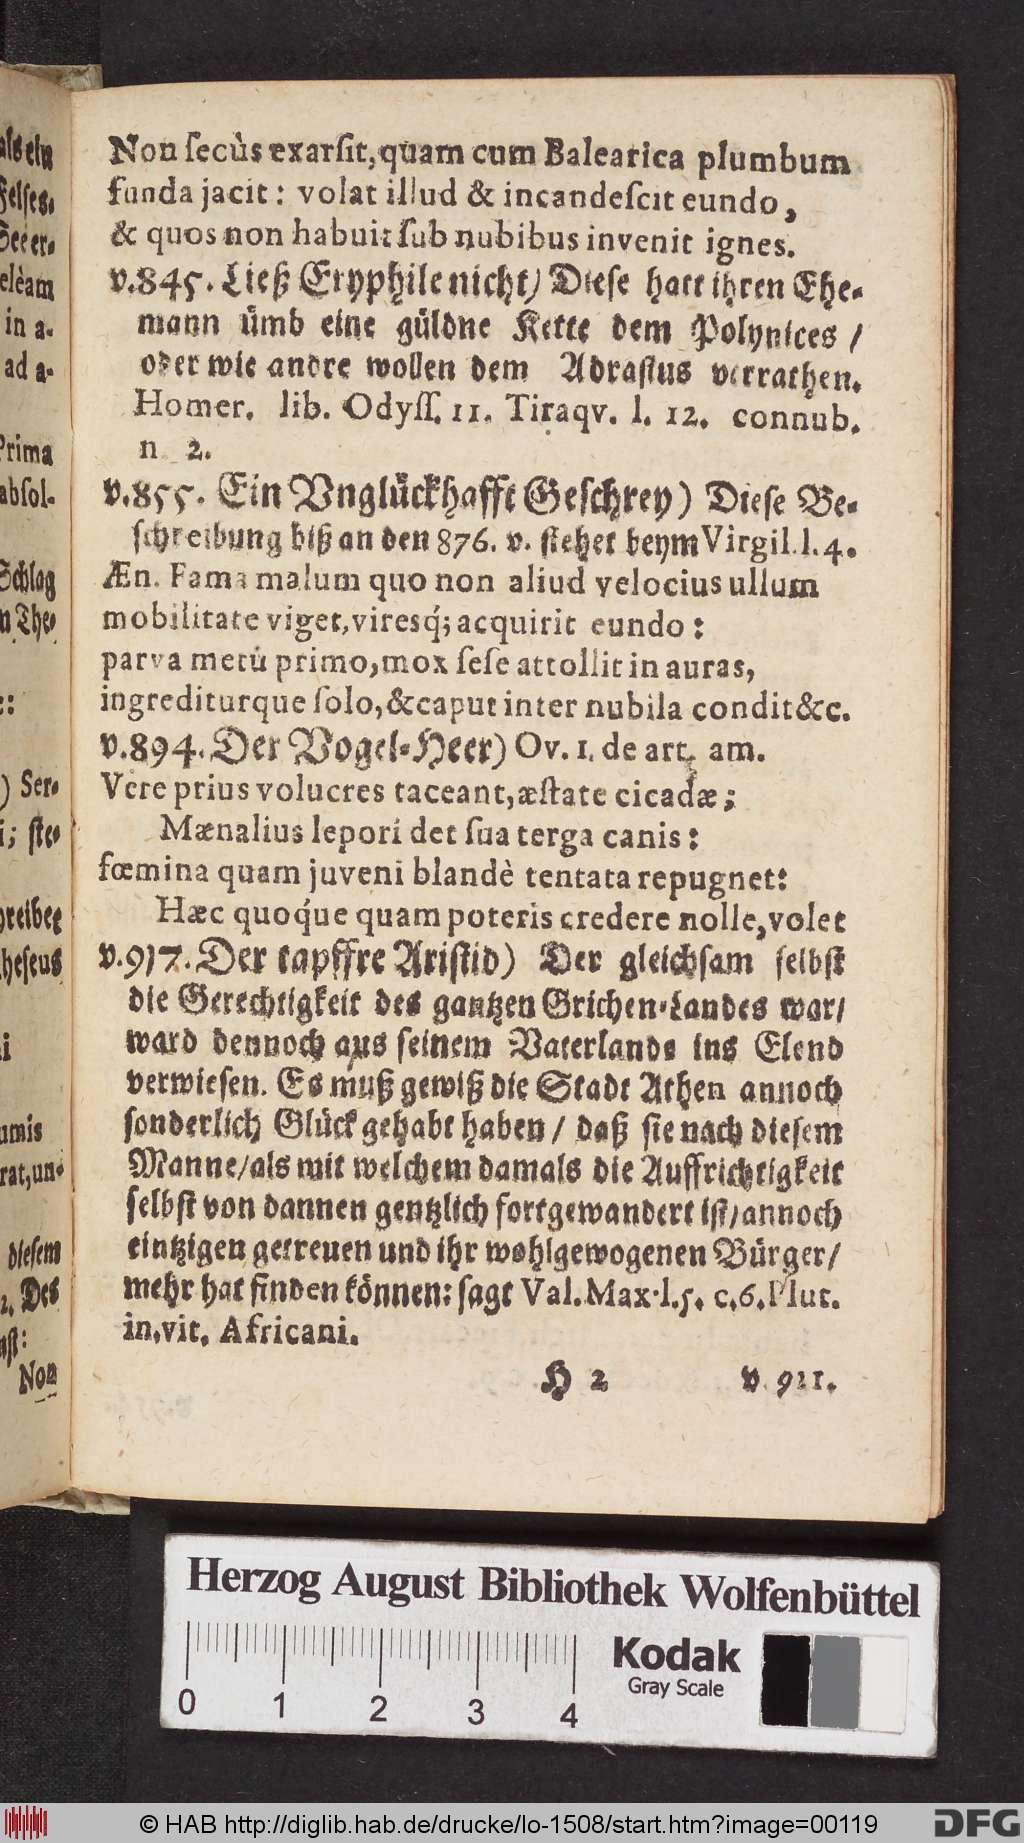 Non ſecùs exarſit, quam cum Balearica plumbum
funda jacit: volat illud & incandeſcit eundo,
& quos non habuit ſub nubibus invenit ignes.
v.845. Ließ Eryphile nicht) Dieſe hatt ihren Ehe-
mann ümb eine güldne Kette dem Polynices /
oder wie andre wollen dem Adraſtus verrathen.
Homer. lib. Odyſſ. 11. Tiraqv. l. 12. connub.
n 2.
v.855. Ein Vnglückhafft Geſchrey) Dieſe Be-
ſchreibung biß an den 876. v. ſtehet beym Virgil. l. 4.
Æn. Fama malum quo non aliud velocius ullum
mobilitate viget, viresq́; acquirit eundo:
parva metù primo, mox ſeſe attollit in auras,
ingrediturque ſolo, & caput inter nubila condit &c.
v.894. Der Vogel-Heer) Ov. 1. de art. am.
Vere prius volucres taceant, æſtate cicadæ;
Mænalius lepori det ſua terga canis:
fœmina quam juveni blandè tentata repugnet:
Hæc quoq́ue quam poteris credere nolle, volet
v.917. Der tapffre Ariſtid) Der gleichſam ſelbſt
die Gerechtigkeit des gantzen Grichen-Landes war/
ward dennoch aus ſeinem Vaterlande ins Elend
verwieſen. Es muß gewiß die Stadt Athen annoch
ſonderlich Glück gehabt haben / daß ſie nach dieſem
Manne/als mit welchem damals die Auffrichtigkeit
ſelbſt von dannen gentzlich fortgewandert iſt/annoch
eintzigen getreuen und ihr wohlgewogenen Bürger/
mehr hat finden können: ſagt Val. Max. l. 5. c. 6. Plut.
in. vit. Africani.
H 2 v. 911.
als ein
Felſes.
See er-
eléam
in a-
ad a-
Prima
abſol-
Schlag
n The-
) Ser-
i; ſte-
hreibet
heſeus
i
umis
rat, un-
dieſem
2. Des
nſt:
Non
Herzog August Bibliothek Wolfenbüttel
Kodak
Gray Scale
0 1 2 3 4
© HAB http://diglib.hab.de/drucke/lo-1508/start.htm?image=00119
DFG